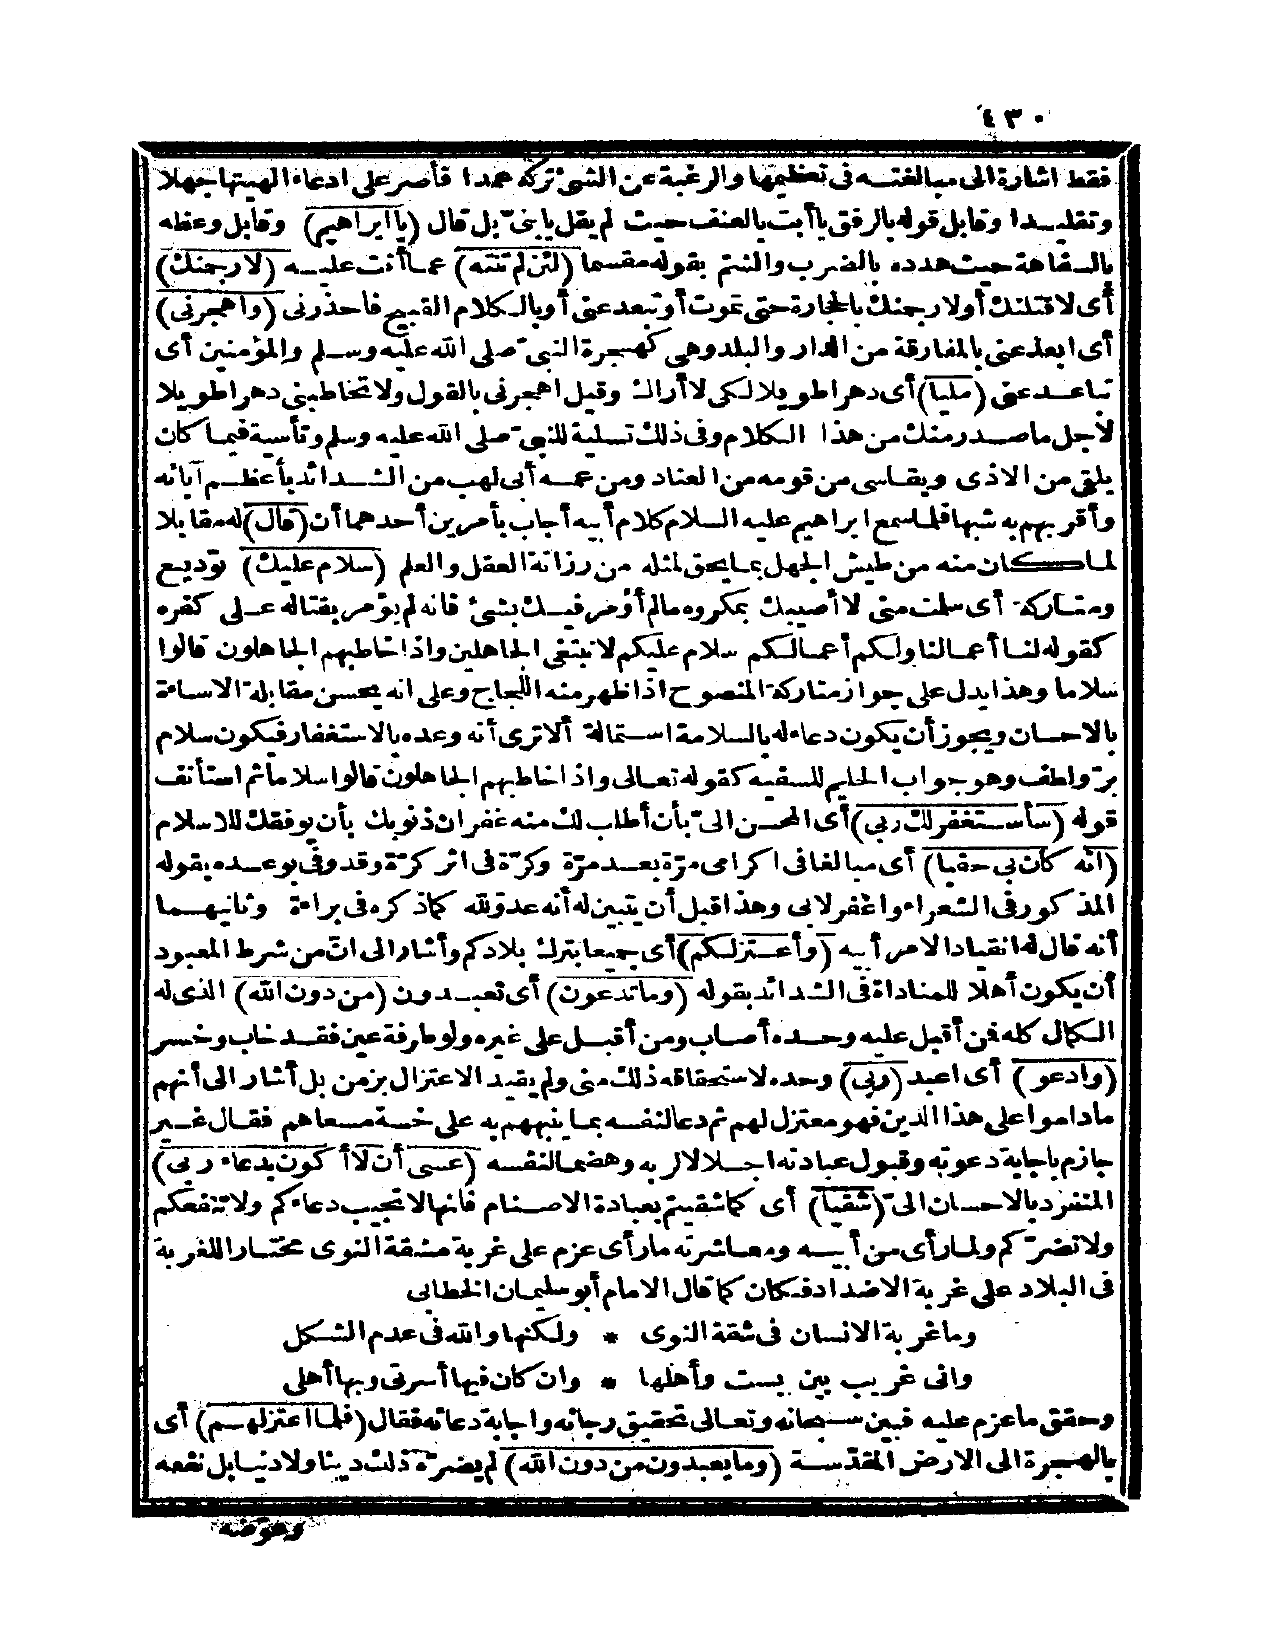 ٤٣٠
فقط اشارة الى مبالغته فى تعظيمها والرغبة عن الشئ تركه عمدا فأصر على ادعاء الهيتها جهلا
وتقليدا وقابل قوله بالرفق ياأبت بالعنف حيث لم يقل يابنىّ بل قال (ياابراهيم) وقابل وعظه
بالسفاهة حيث هدده بالضرب والشتم بقوله مقسما (لئن لم تنته) عما أنت عليه (لارجمنك)
أى لاقتلنك أولارجمنك بالحجارة حتى تموت أوتبعد عنى أوبالكلام القبيح فاحذرنى (واهجرنى)
أى ابعد عنى بالمفارقة من الدار والبلد وهى كهجرة النبىّ صلى الله عليه وسلم والمؤمنين أى
تباعد عنى (مليا) أى دهرا طويلا لكى لاأراك وقيل اهجرنى بالقول ولاتخاطبنى دهراطويلا
لاجل ماصدر منك من هذا الكلام وفى ذلك تسلية للنبىّ صلى الله عليه وسلم وتأسية فيما كان
يلقى من الاذى ويقاسى من قومه من العناد ومن عمه أبى لهب من الشدائد بأعظم آبائه
وأقربهم به شبها فلما سمع ابراهيم عليه السلام كلام أبيه أجاب بأمرين أحدهما أن (قال) له مقابلا
لما كان منه من طيش الجهل بما يحق لمثله من رزانة العقل والعلم (سلام عليك) توديع
ومتاركة أى سلمت منى لاأصيبك بمكروه مالم أؤمر فيك بشئ فانه لم يؤمر بقتاله على كفره
كقوله لنا أعمالنا ولكم أعمالكم سلام عليكم لانبتغى الجاهلين واذا خاطبهم الجاهلون قالوا
سلاما وهذا يدل على جواز متاركة المنصوح اذا ظهر منه اللجاج وعلى انه يحسن مقابلة الاساءة
بالاحسان ويجوز أن يكون دعاء له بالسلامة استمالة ألاترى أنه وعده بالاستغفار فيكون سلام
برّ ولطف وهو جواب الحليم للسفيه كقوله تعالى واذا خاطبهم الجاهلون قالوا سلاما ثم استأنف
قوله (سأستغفر لك ربى) أى المحسن الىّ بأن أطلب لك منه غفران ذنوبك بأن يوفقك للاسلام
(انه كان بى حفيا) أى مبالغا فى اكرامى مرّة بعد مرّة وكرّة فى اثر كرّة وقد وفى بوعده بقوله
المذكور فى الشعراء واغفر لابى وهذا قبل أن يتبين له أنه عدوّ لله كما ذكره فى براءة وثانيهما
أنه قال له انقيادا لامر أبيه (وأعتزلكم) أى جميعا بترك بلادكم وأشار الى انّ من شرط المعبود
أن يكون أهلا للمناداة فى الشدائد بقوله (وماتدعون) أى تعبدون (من دون الله) الذى له
الكمال كله فمن أقبل عليه وحده أصاب ومن أقبل على غيره ولو طرفة عين فقد خاب وخسر
(وادعو) أى اعبد (ربى) وحده لاستحقاقه ذلك منى ولم يقيد الاعتزال بزمن بل أشار الى أنهم
ماداموا على هذا الدين فهو معتزل لهم ثم دعا لنفسه بما ينبههم به على خسة مسعاهم فقال غير
جازم باجابة دعوته وقبول عبادته اجلالا لربه وهضما لنفسه (عسى أن لاأكون بدعاء ربى)
المنفرد بالاحسان الىّ (شقيا) أى كما شقيتم بعبادة الاصنام فانها لاتجيب دعاءكم ولاتنفعكم
ولاتضرّكم ولما رأى من أبيه ومعاشرته مارأى عزم على غربة مشقة النوى مختارا للغربة
فى البلاد على غربة الاضداد فكان كما قال الامام أبو سليمان الخطابى
وماغربة الانسان فى شقة النوى * ولكنها والله فى عدم الشكل
وانى غريب بين بست وأهلها * وان كان فيها أسرتى وبها أهلى
وحقق ماعزم عليه فبين سبحانه وتعالى تحقيق رجائه واجابة دعائه فقال (فلما اعتزلهم) أى
بالهجرة الى الارض المقدسة (ومايعبدون من دون الله) لم يضرّه ذلك دينا ولادنيا بل نفعه
وعوّضه